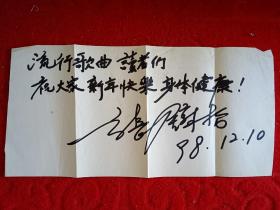 流行歌曲 讀者們
祝大家 新年快樂 身体健康!
98.12.10